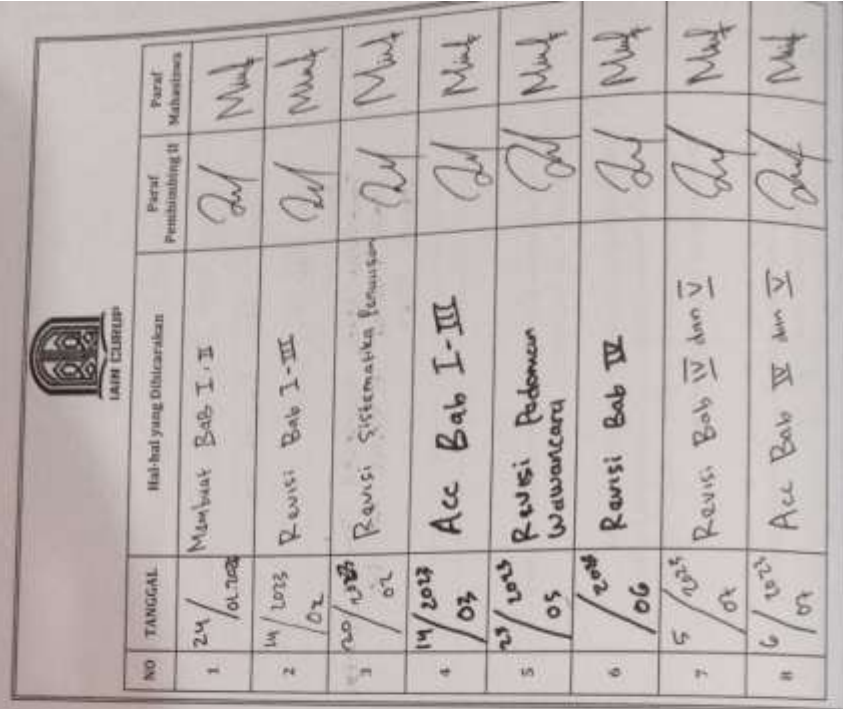 IAIN CURUP
NO TANGGAL Hal-hal yang Dibicarakan Paraf Pembimbing II Paraf Mahasiswa
1 24/01 2023 Membuat Bab I, II
2 14/2023 02 Revisi Bab I-III
3 20/2023 02 Revisi Sistematika Penulisan
4 14/2023 03 Acc Bab I-III
5 23/2023 05 Revisi Pedoman
Wawancara
6 /2023 06 Revisi Bab IV
7 5/2023 07 Revisi Bab IV dan V
8 6/2023 07 Acc Bab IV dan V